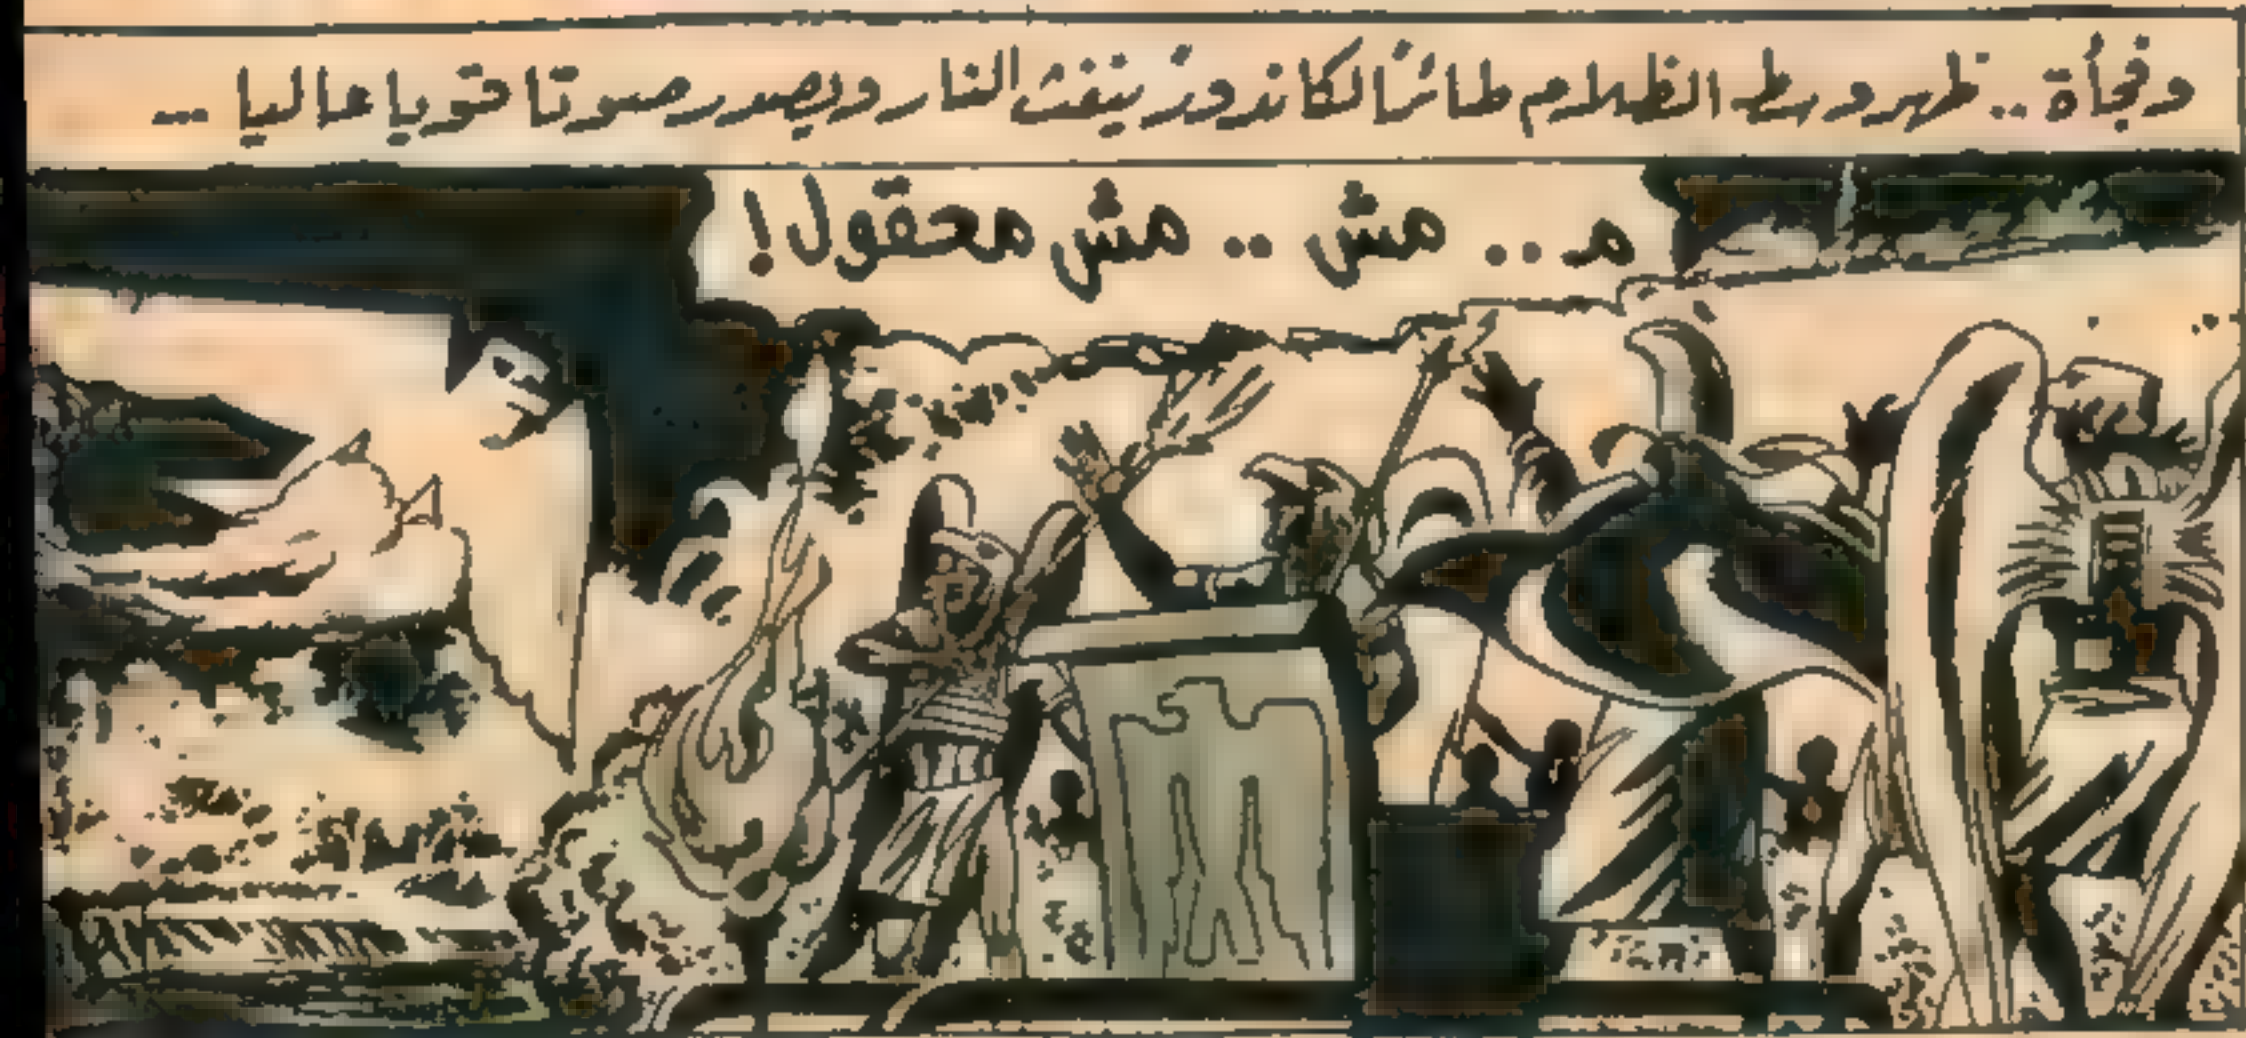 وفجأة .. ظهر وسط الظلام طائر الكاندور ينفث النار ويصدر صوتا قويا عاليا ...
م .. مش .. مش معقول!